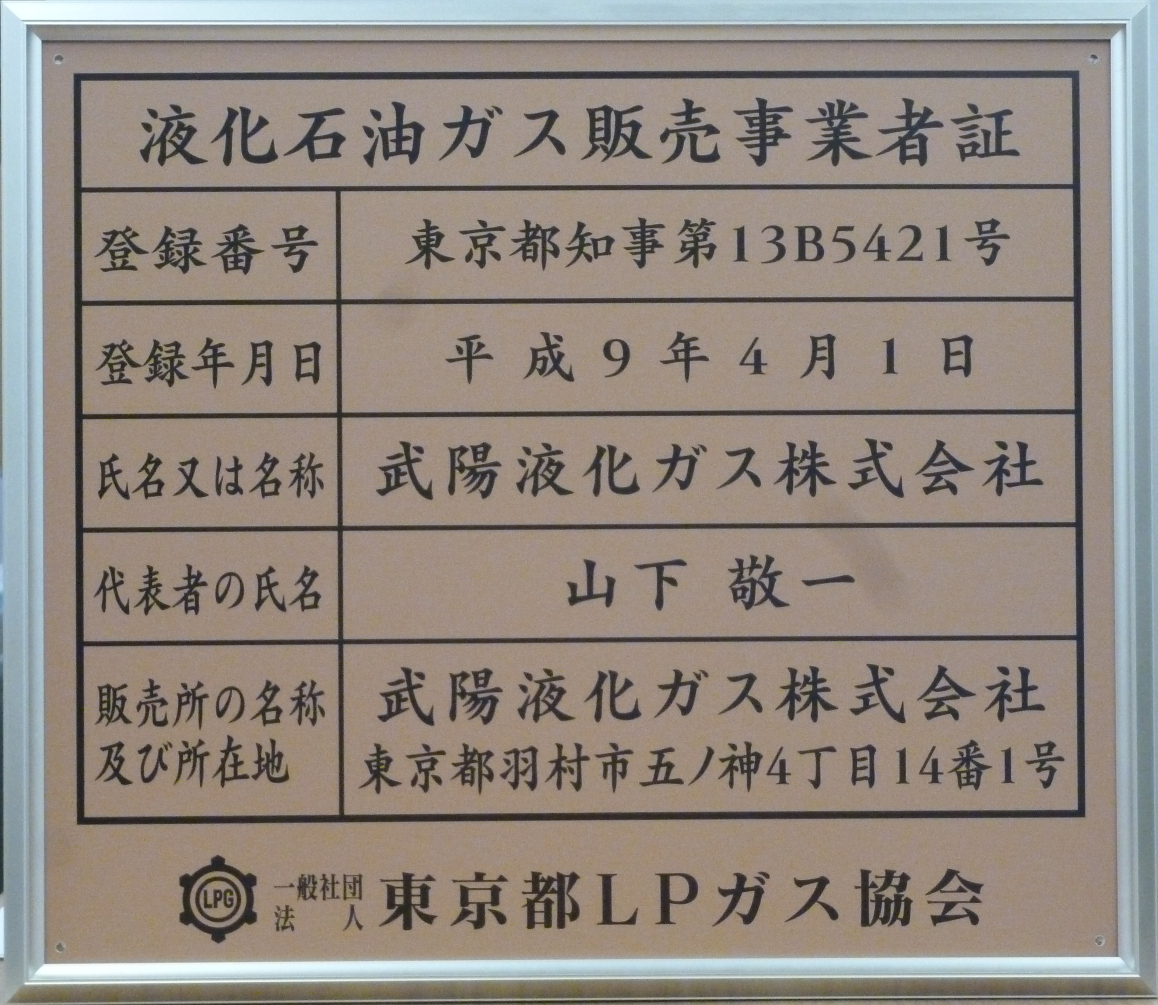 液化石油ガス販売事業者証
登録番号 東京都知事第13B5421号
登録年月日 平成9年4月1日
氏名又は名称 武陽液化ガス株式会社
代表者の氏名 山下 敬一
販売所の名称 武陽液化ガス株式会社
及び所在地 東京都羽村市五ノ神4丁目14番1号
LPG 一般社団法人 東京都LPガス協会